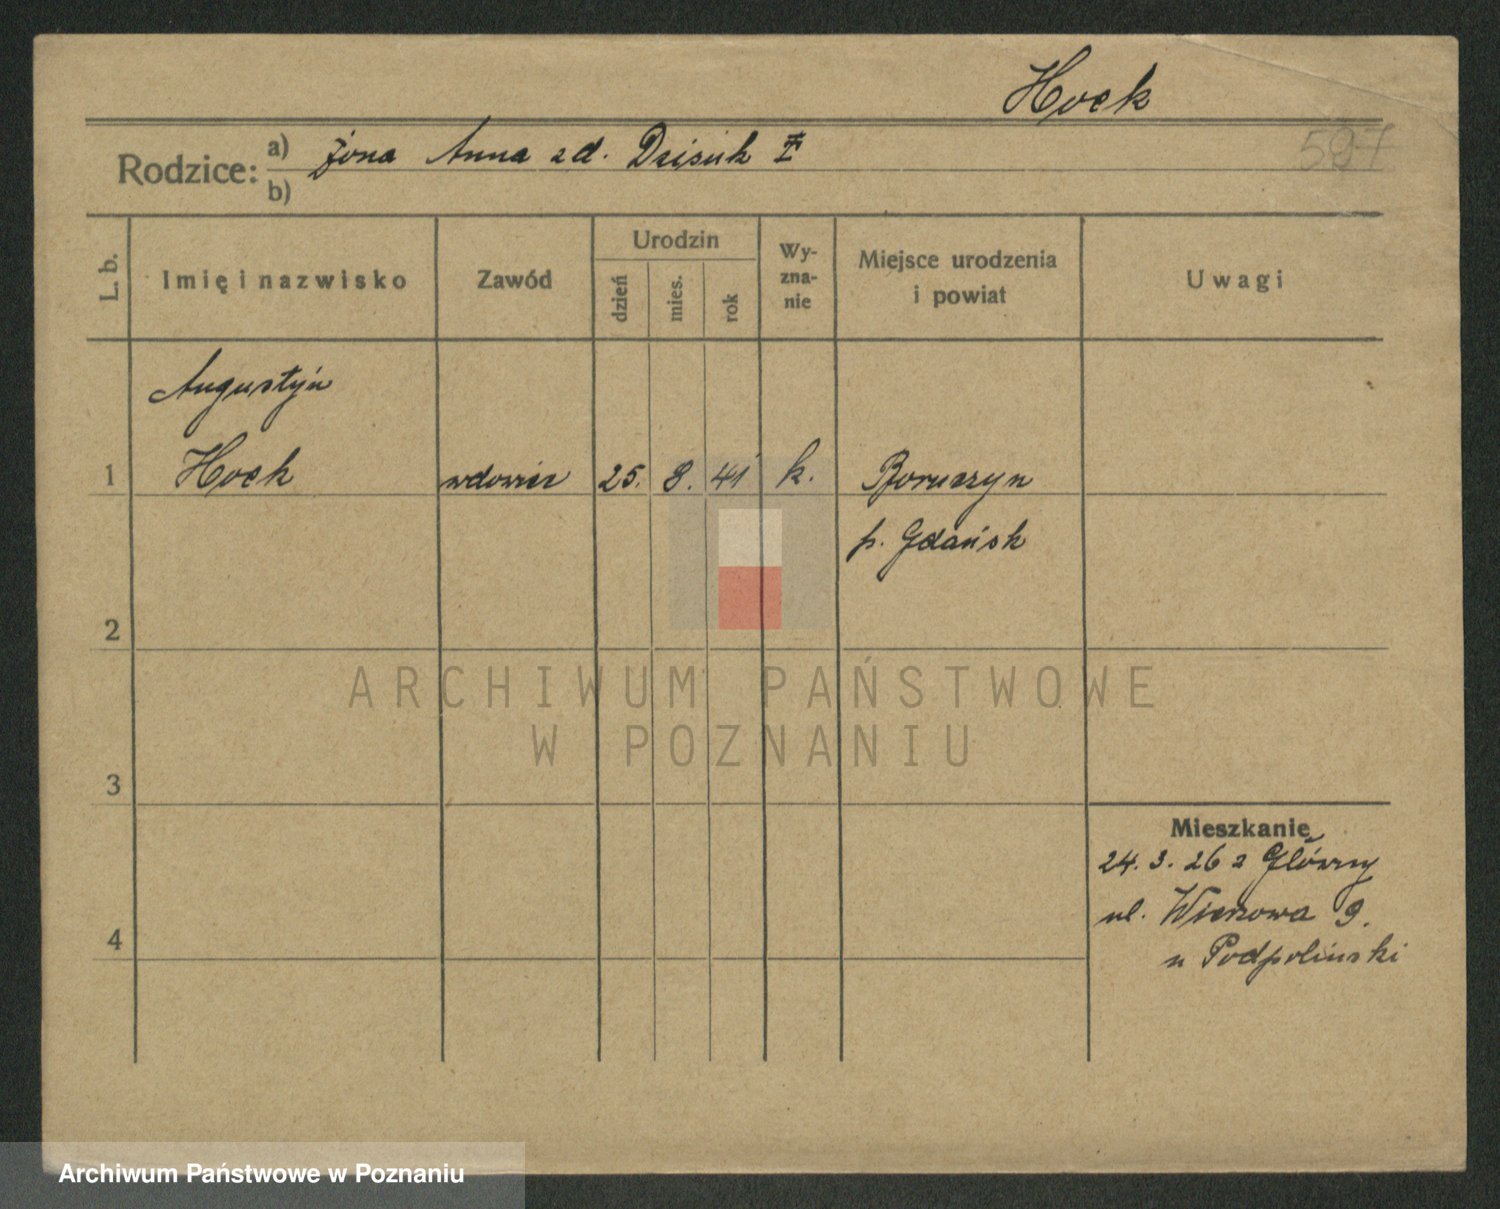 Hoek
597
Rodzice: a) żona Anna zd. Dzisuk
b)
L. b.
Imię i nazwisko
Zawód
Urodzin
dzień
mies.
rok
Wy-
zna-
nie
Miejsce urodzenia
i powiat
Uwagi
Augustyn
1 Hoek wdowiec 25. 8. 41 k. Boruszyn
p. Gdańsk
2
3
4
Mieszkanie
24. 3. 26 z Główny
ul. 9.
u Podpoliński
ARCHIWUM PAŃSTWOWE
W POZNANIU
Archiwum Państwowe w Poznaniu